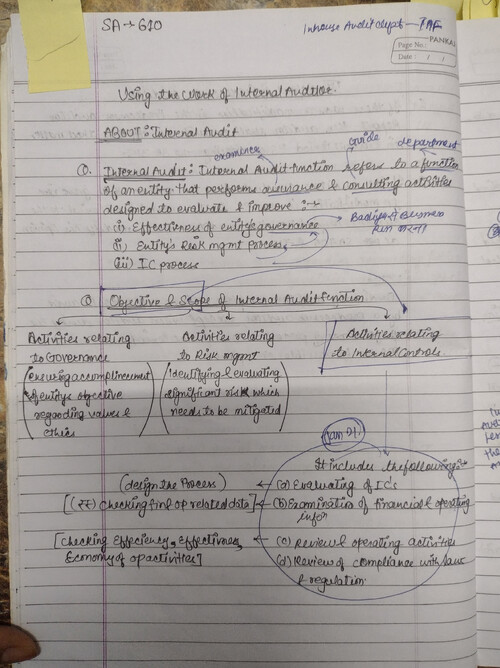 SA → 610
Inhouse Audit deptt — IAF
PANKAJ
Page No:
Date: / /
Using the Work of Internal Auditor.
ABOUT: Internal Audit
examiner
Guide
department
Q. Internal Audit: Internal Audit function refers to a function
of an entity that performs assurance & consulting activities
designed to evaluate & improve :-
(i) Effectiveness of entity's governance
(ii) Entity's Risk mgmt process
(iii) IC process
Business
Run करना
Q Objective & Scope of Internal Audit function
Activities relating
to Governance
Activities relating
to Risk mgmt
Activities relating
to Internal Controls
ensuring accomplincement
of entitys objective
regarding values &
ethics
Identifying & evaluating
significant risk which
needs to be mitigated
Jan 21
It includes the following:-
(design the Process) ← (a) Evaluating of ICs
[(₹₹) checking fin & op related data] ← (b) Examination of financial & operating
infor
[checking Efficiency, Effectivness, ← (c) Review & operating activities
Economy of op activities]
(d) Review of compliance with laws
& regulation